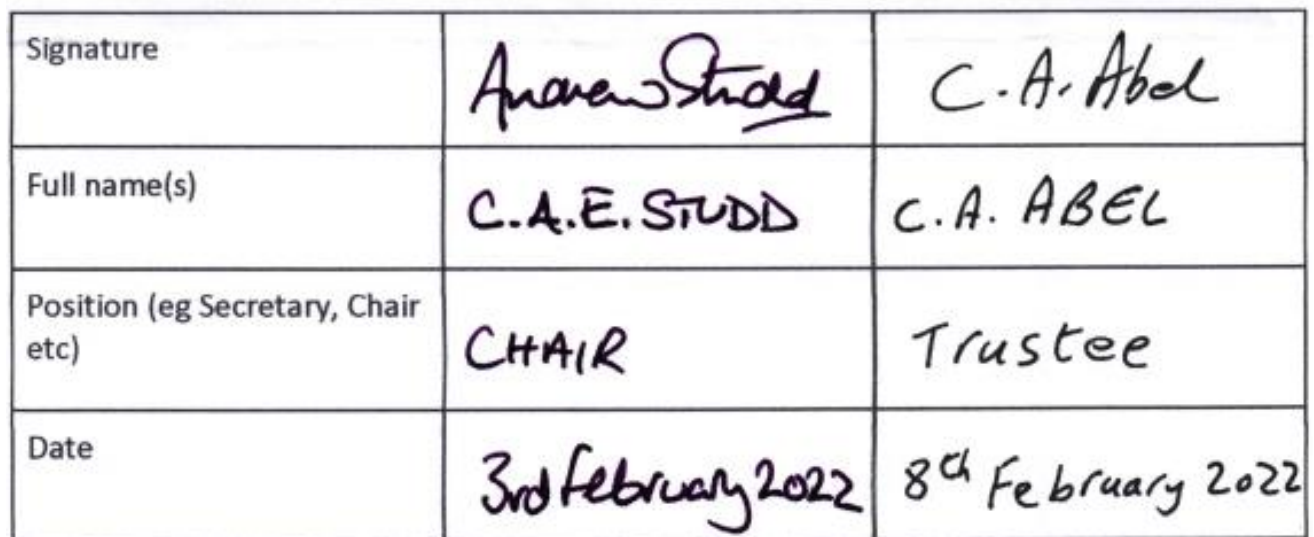 Signature Andrew Studd C.A. Abel
Full name(s) C.A.E. STUDD C.A. ABEL
Position (eg Secretary, Chair
etc) CHAIR Trustee
Date 3rd February 2022 8th February 2022